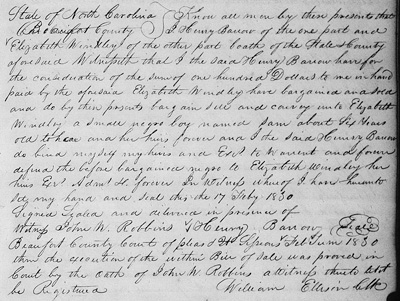 State of North Carolina } Know all men by these presents that
Beaufort County } I Henry Barrow of the one part and
Elizabeth Windley of the other part boath of the State & County
aforesaid Witnesseth that I the said Henry Barrow have for
the consideration of the sum of one hundred Dollars to me in hand
paid by the aforesaid Elizabeth Windley have bargained and sold
and do by these presents bargain sell and convey unto Elizabeth
Windley a small negro boy named Sam about Six Years
old to her and her heirs forever and I the said Henry Barrow
do bind myself my heirs and Exrs to Warrent and forever
defend the before bargained negro to Elizabeth Windley her
heirs Exrs Admrs &c forever In Witness whereof I have hereunto
set my hand and seal this the 17 Feby 1830
Signed Sealed and delivered in presence of
Witness John W. Robbins Henry Barrow Seal
Beaufort County Court of pleas & Feb Term 1830
then the execution of the within Bill of Sale was proved in
Court by the oath of John W. Robbins a witness thereto let it
be Registered William Ellison Clk